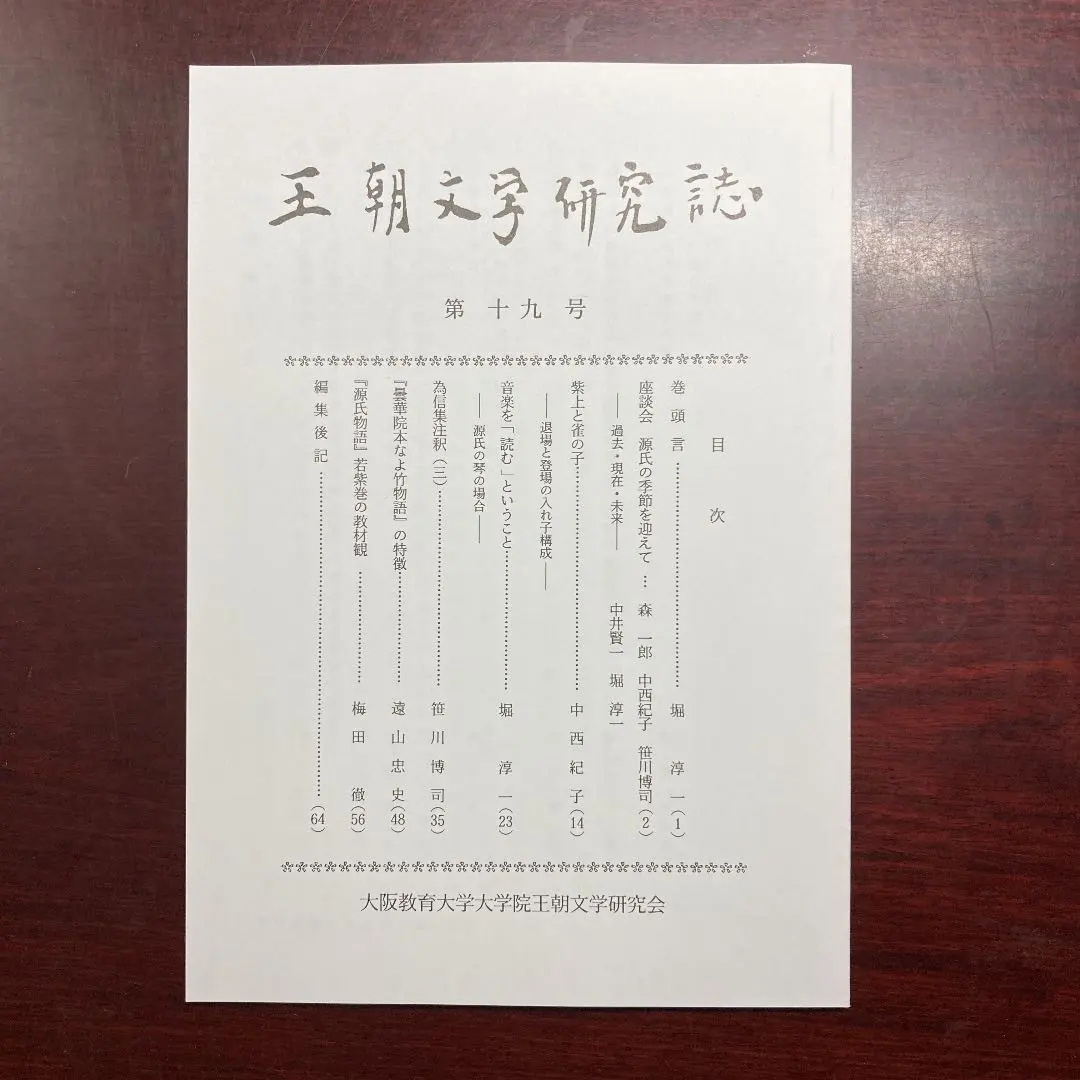 王朝文学研究誌
第十九号
目次
巻頭言……堀淳一(1)
座談会 源氏の季節を迎えて…森一郎 中西紀子 笹川博司(2)
――過去・現在・未来―― 中井賢一 堀淳一
紫上と雀の子……中西紀子(14)
――退場と登場の入れ子構成――
音楽を「読む」ということ……堀淳一(23)
――源氏の琴の場合――
為信集注釈(三)……笹川博司(35)
『曇華院本なよ竹物語』の特徴……遠山忠史(48)
『源氏物語』若紫巻の教材観……梅田徹(56)
編集後記……(64)
大阪教育大学大学院王朝文学研究会